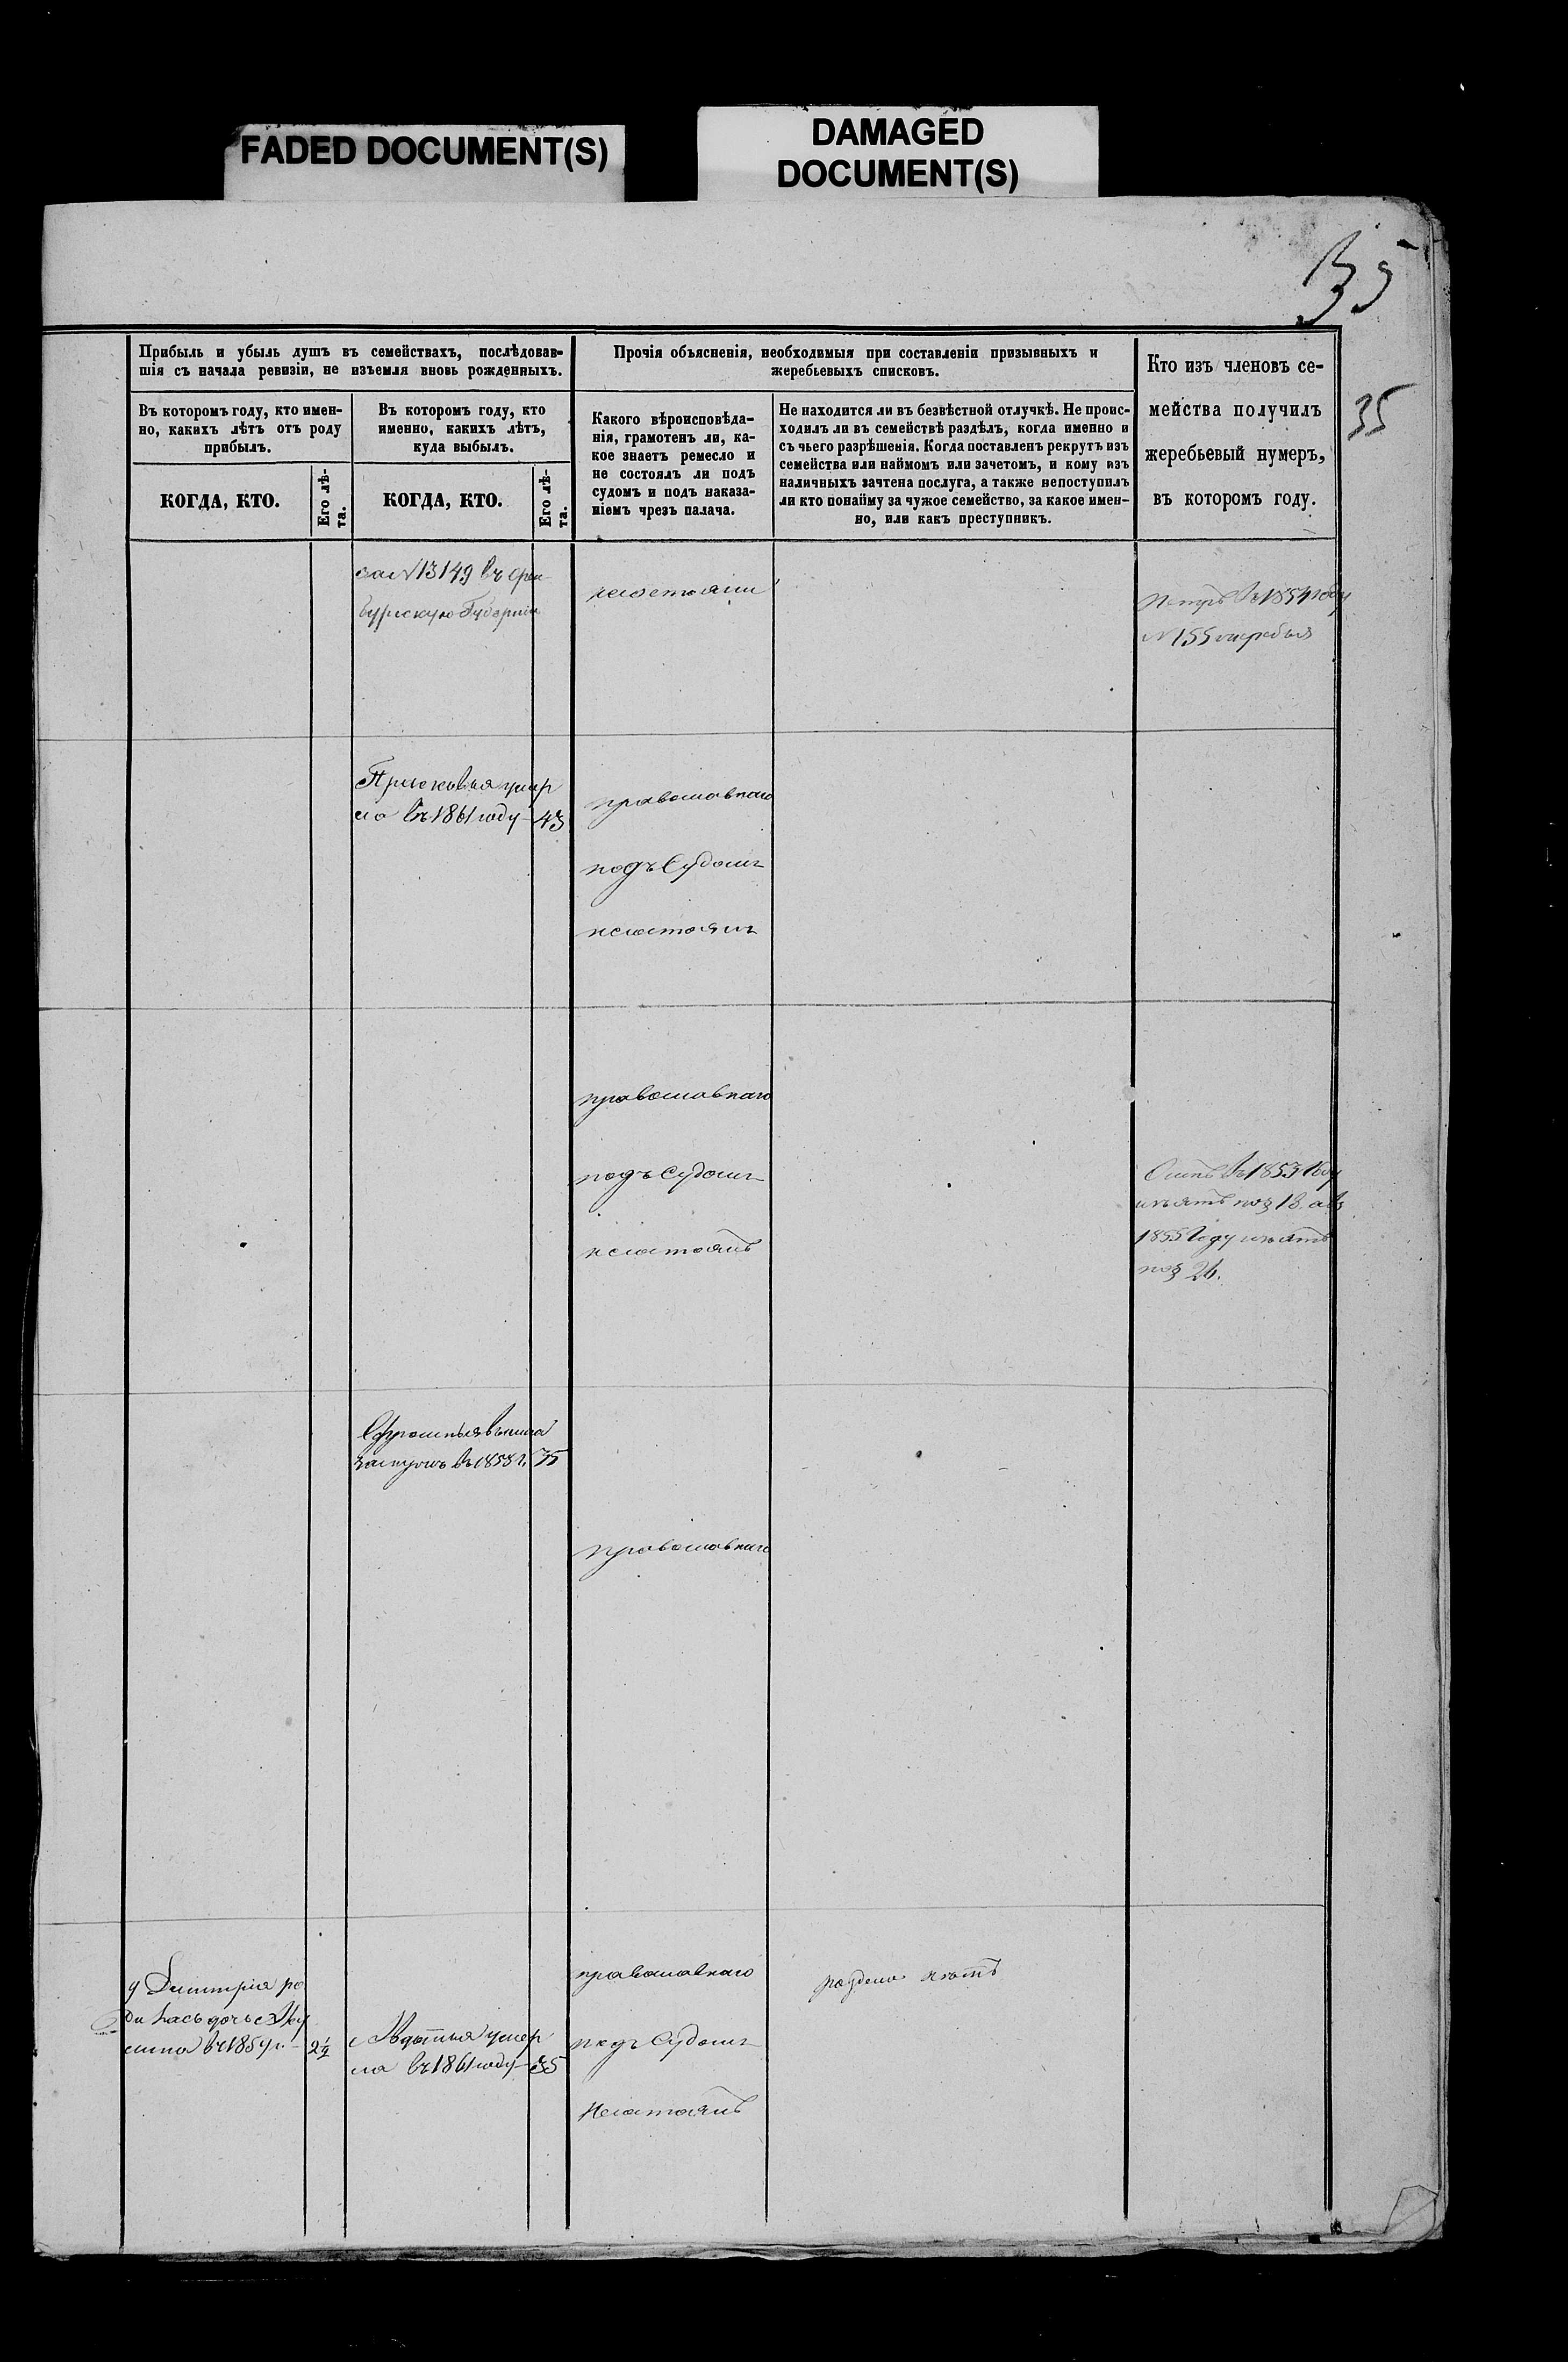 FADED DOCUMENT(S)
DAMAGED
DOCUMENT(S)
35
35
Прибыль и убыль душъ въ семействахъ, послѣдовав-
шія съ начала ревизіи, не изъемля вновь рожденныхъ.
Прочія объясненія, необходимыя при составленіи призывныхъ и
жеребьевыхъ списковъ.
Кто изъ членовъ се-
мейства получилъ
жеребьевый нумеръ,
въ которомъ году.
Въ которомъ году, кто имен-
но, какихъ лѣтъ отъ роду
прибылъ.
Въ которомъ году, кто
именно, какихъ лѣтъ,
куда выбылъ.
Какого вѣроисповѣда-
нія, грамотенъ ли, ка-
кое знаетъ ремесло и
не состоялъ ли подъ
судомъ и подъ наказа-
ніемъ чрезъ палача.
Не находится ли въ безвѣстной отлучкѣ. Не проис-
ходилъ ли въ семействѣ раздѣлъ, когда именно и
съ чьего разрѣшенія. Когда поставленъ рекрутъ изъ
семейства или наймомъ или зачетомъ, и кому изъ
наличныхъ зачтена послуга, а также непоступилъ
ли кто понайму за чужое семейство, за какое имен-
но, или какъ преступникъ.
КОГДА, КТО.
Его лѣ-
та.
КОГДА, КТО.
Его лѣ-
та.
за N 13149 въ Орен-
бургскую Губернію
несостояли
Петръ въ 1854 году
N 155 жребья
Прасковья умер
ла въ 1861 году - 43
православнаго
подъ Судомъ
несостоялъ
православнаго
подъ Судомъ
несостоялъ
въ 1853 Году
18.
1855 Году
26.
замужъ въ 1858 г. 35
православнаго
у Димитрія ро
дилась дочь
въ 1859 г. - 2½
Авдотья умер
ла въ 1861 году - 35
православнаго
подъ Судомъ
Несостоялъ
раздела нетъ